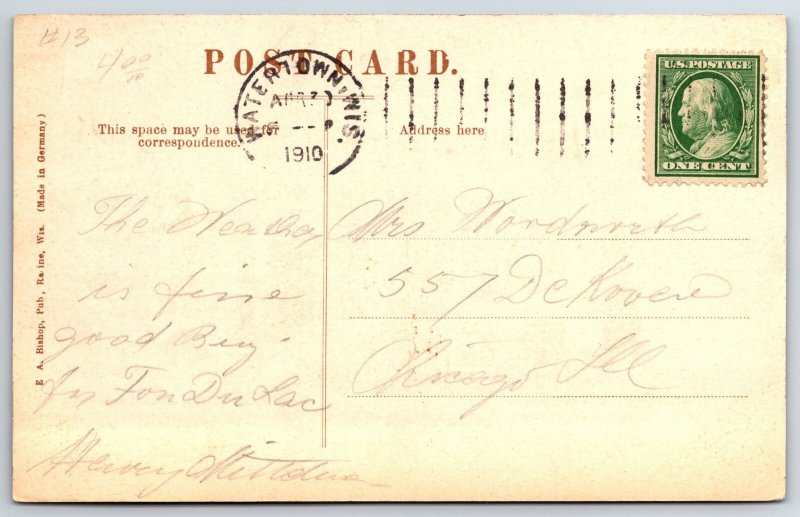 #13
400
POST CARD.
WATERTOWN, WIS.
1910
U.S. POSTAGE
ONE CENT
This space may be used for
correspondence.
Address here
E. A. Bishop, Pub, Racine, Wis. (Made in Germany)
The Weather
is fine
good
for Fon Du Lac
Mrs Wordsworth
557 De Koven
Chicago Ill